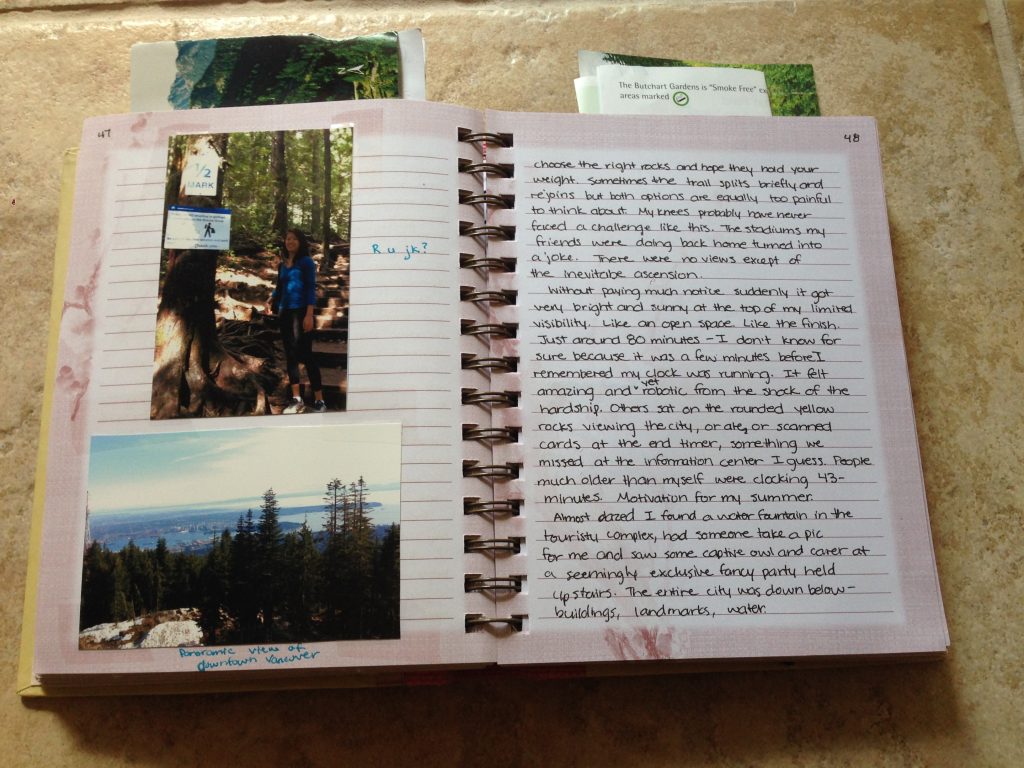 The Butchart Gardens is "Smoke Free" ex
areas marked
47
1/2
MARK
R u jk?
Panoramic view of
downtown Vancuver
48
choose the right rocks and hope they hold your
weight. Sometimes the trail splits briefly and
rejoins but both options are equally too painful
to think about. My knees probably have never
faced a challenge like this. The stadiums my
friends were doing back home turned into
a joke. There were no views except of
the inevitable ascension.
Without paying much notice suddenly it got
very bright and sunny at the top of my limited
visibility. Like an open space. Like the finish.
Just around 80 minutes - I don't know for
sure because it was a few minutes before I
remembered my clock was running. It felt
amazing and yet robotic from the shock of the
hardship. Others sat on the rounded yellow
rocks viewing the city, or ate, or scanned
cards at the end timer, something we
missed at the information center I guess. People
much older than myself were clocking 43-
minutes. Motivation for my summer.
Almost dazed I found a water fountain in the
touristy complex, had someone take a pic
for me and saw some captive owl and carer at
a seemingly exclusive fancy party held
upstairs. The entire city was down below-
buildings, landmarks, water.